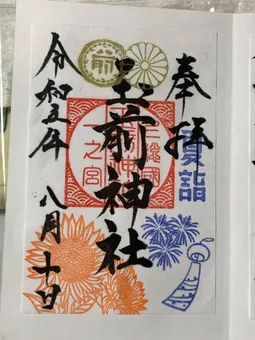 奉拝
夏詣
上総國
玉前神社
一之宮
玉前神社
令和五年 八月十日